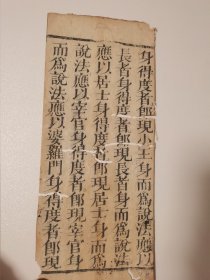 身得度者卽現小王身而爲說法應以
長者身得度者卽現長者身而爲說法
應以居士身得度者卽現居士身而爲
說法應以宰官身得度者卽現宰官身
而爲說法應以婆羅門身得度者卽現